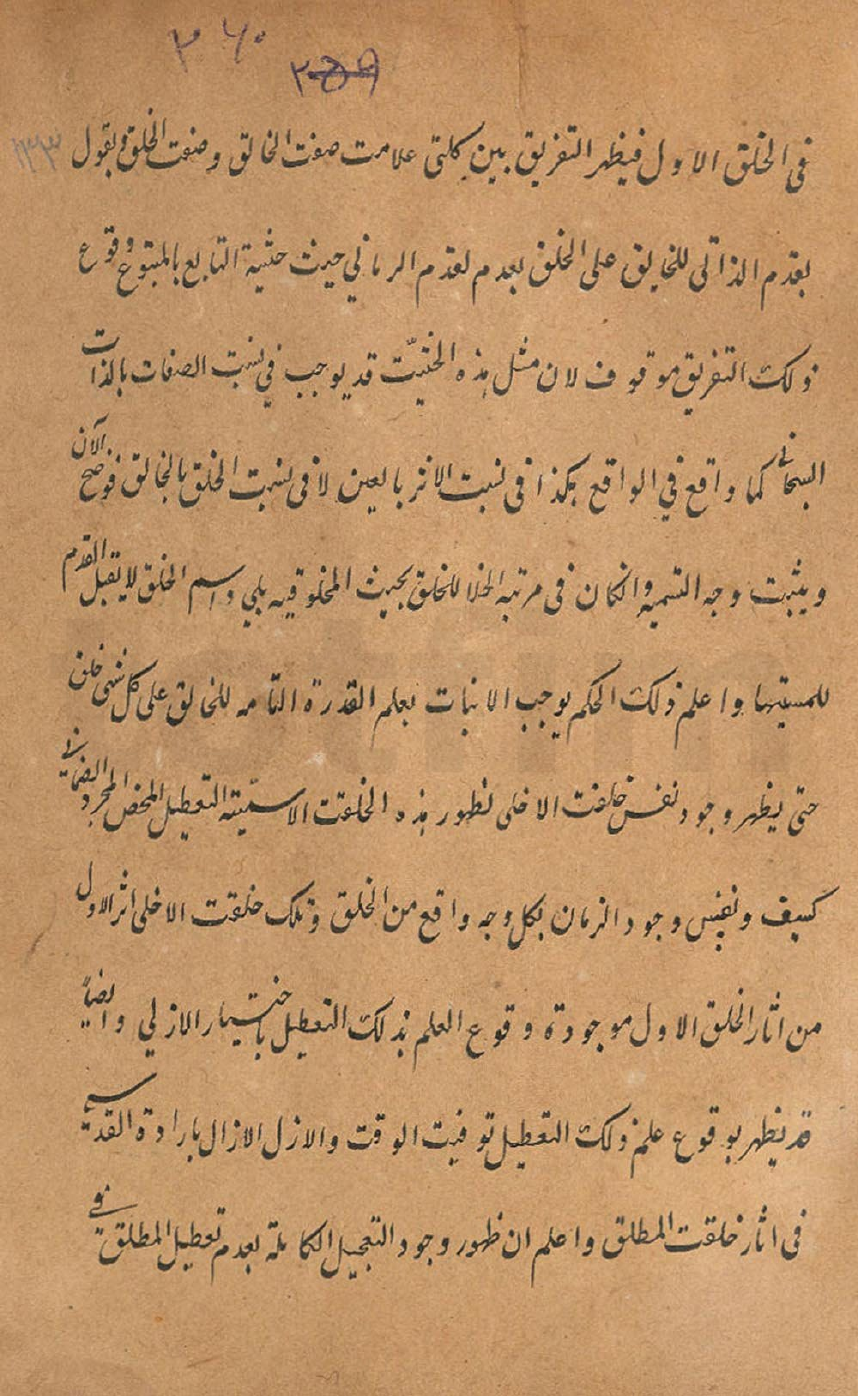 ۳۶۰
۳۵۹
۱۳۳
فی الخلق الاول فیظهر التفریق بین کلتی علامت صفت الخالق وصفت الخلق ویقول
بقدم الذاتی للخالق علی الخلق بعدم لقدم الزمانی حیث حثیة التابع بالمتبوع وقوع
ذلک التفریق موقوف لان مثل هذه الحثیّت قد یوجب فی نسبت الصفات بالذات
السبحانی کما واقع فی الواقع هکذا فی نسبت الاثر بالعین لا فی نسبت الخلق بالخالق فوضح الآن
ویثبت وجه التسمیه والکان فی مرتبه الخلا للخلق بحیث المخلوقیه بلی واسم الخلق لا یقبل القدم
للمسیتها واعلم ذلک الحکم یوجب الاثبات بعلم القدرة التامه للخالق علی کل شی خلق
حتی یظهر وجود نفس خلقت الاخلی لظهور هذه الخلقت الا التعطیل المحض المجرد
کیف ونفیس وجود الزمان بکل وجه واقع من الخلق وتلک خلقت الاخلی اثر الاول
من اثار الخلق الاول موجودة وقوع العلم بذلک التعطیل باختیار الازلی وایضاً
قد یظهر بوقوع علم ذلک التعطیل توقیت الوقت والازل الازال بارادة القدیمی
فی اثار خلقت المطلق واعلم ان ظهور وجود التعجیل الکاملة بعدم تعطیل المطلق فی